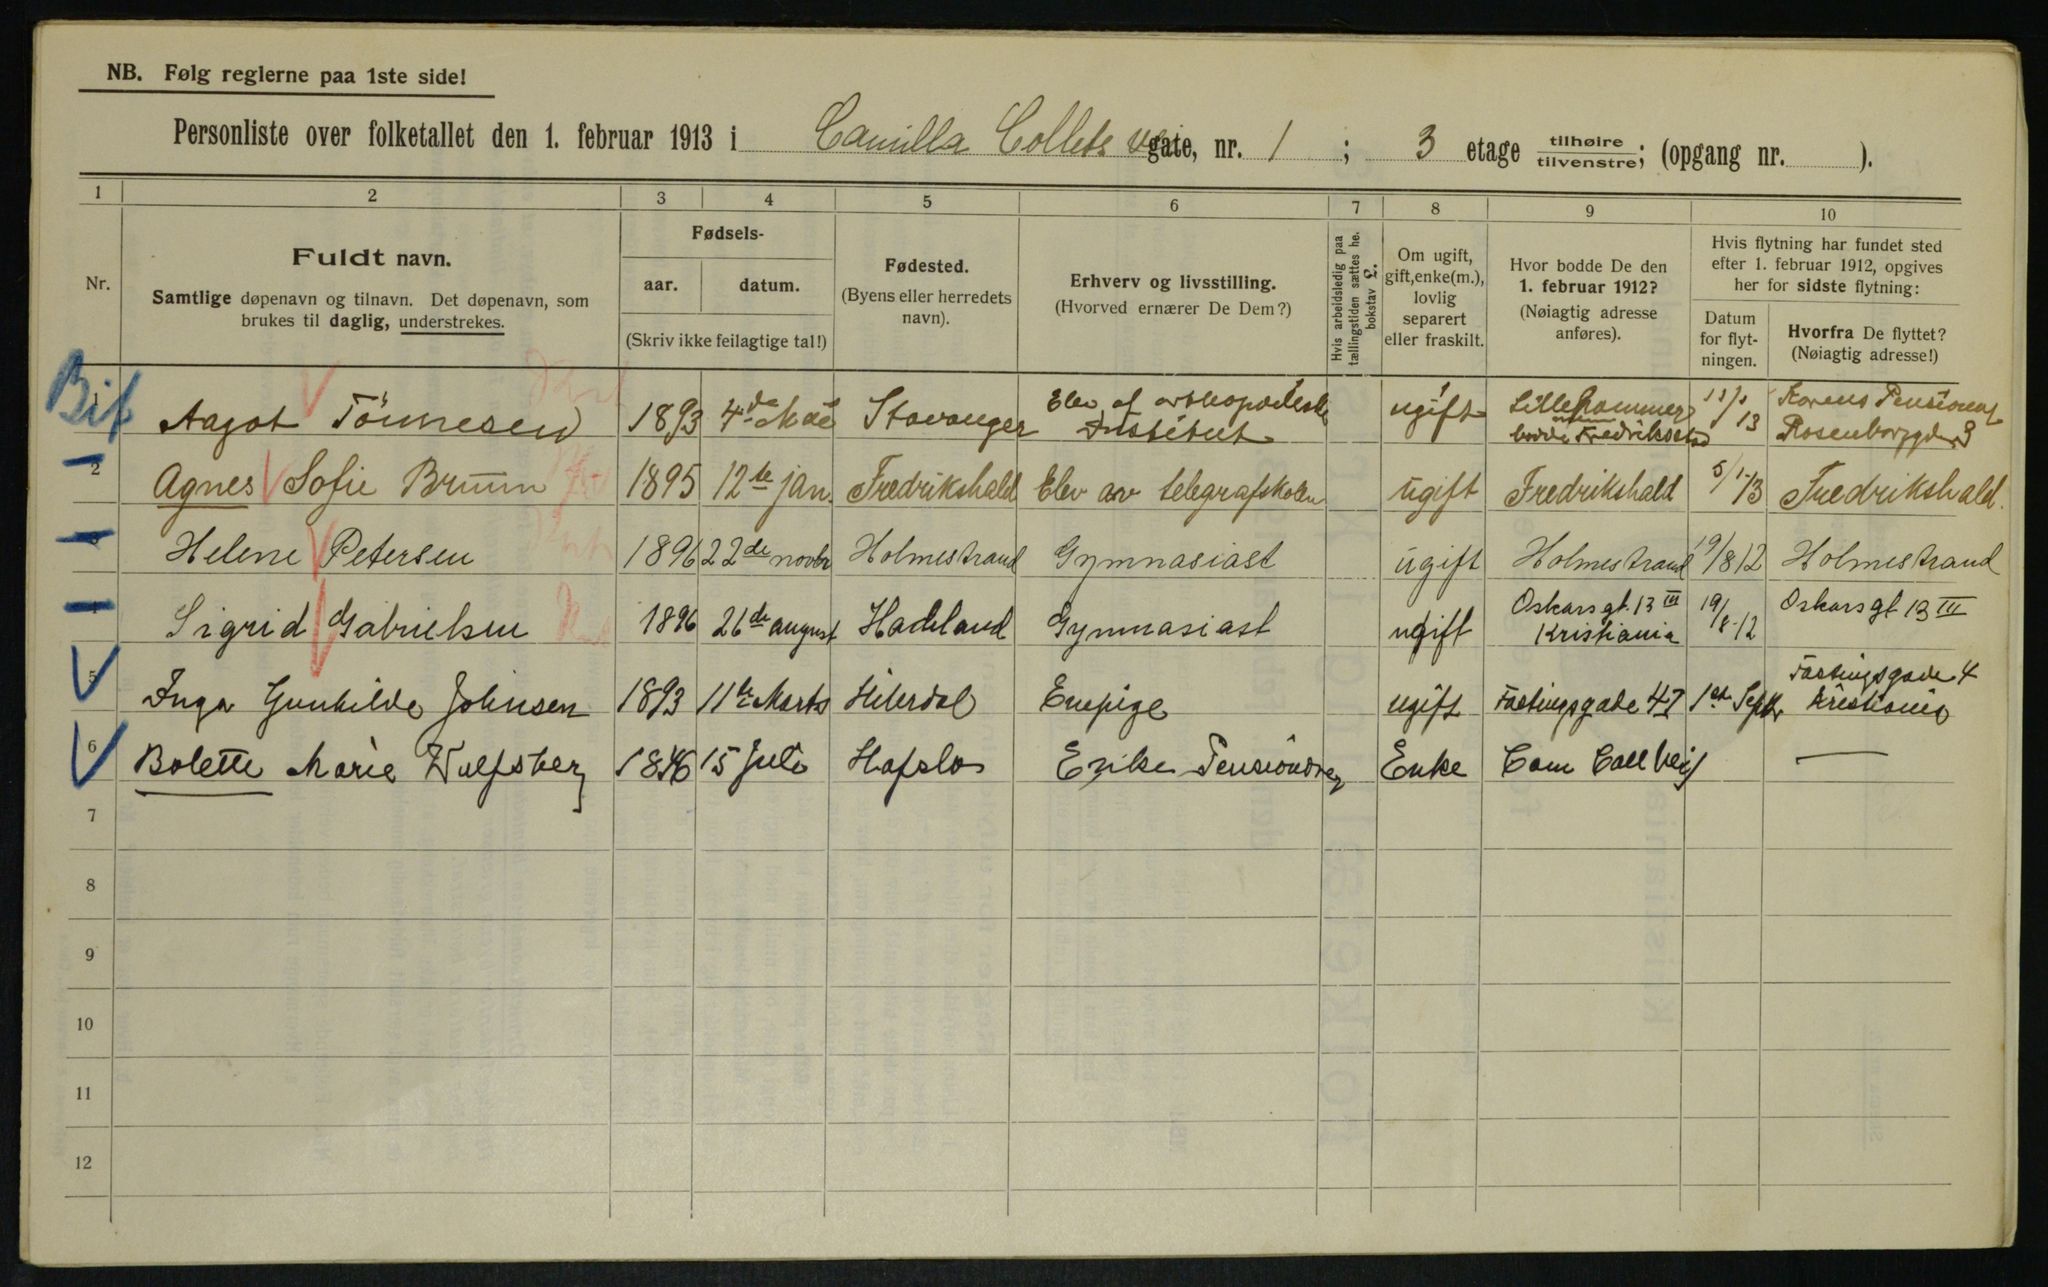 NB. Følg reglerne paa 1ste side!
Personliste over folketallet den 1. februar 1913 i Camilla Collets vei gate, nr. 1 ; 3 etage tilhøire tilvenstre; (opgang nr. ).
1 2 3 4 5 6 7 8 9 10
Nr.
Fuldt navn.
Samtlige døpenavn og tilnavn. Det døpenavn, som
brukes til daglig, understrekes.
Fødsels-
aar. datum.
(Skriv ikke feilagtige tal!)
Fødested.
(Byens eller herredets
navn).
Erhverv og livsstilling.
(Hvorved ernærer De Dem?)
Hvis arbeidsledig paa
tællingstiden sættes he.
bokstav L.
Om ugift,
gift, enke(m.),
lovlig
separert
eller fraskilt.
Hvor bodde De den
1. februar 1912?
(Nøiagtig adresse
anføres).
Hvis flytning har fundet sted
efter 1. februar 1912, opgives
her for sidste flytning:
Datum
for flyt-
ningen.
Hvorfra De flyttet?
(Nøiagtig adresse!)
Bif
1 Aagot Tönnesen 1893 4de Mai Stavanger Elev af Institut ugift Lillehammer bodde Fredrikstad 13 Pensionat
2 Agnes Sofie Bruun 1895 12te jan. Fredrikshald Elev av telegrafskolen ugift Fredrikshald 5/1-13 Fredrikshald.
3 Helene Petersen 1896 22de novbr Holmestrand Gymnasiast ugift Holmestrand 19/8 12 Holmestrand
4 Sigrid Gabrielsen 1896 26de august Hadeland Gymnasiast ugift Oskarsgt. 13 III Kristiania 19/8-12 Oskarsgt 13 III
5 Inga Gunhilde Johnsen 1893 11te Marts Hiterdal Enepige ugift Fastingsgade 4 I 1st Septbr Fastingsgade 4 Kristiania
6 Bolette Marie Wulfsberg 1846 15 Juli Hafslo Enke Enke Cam Coll vei 1 —
7
8
9
10
11
12